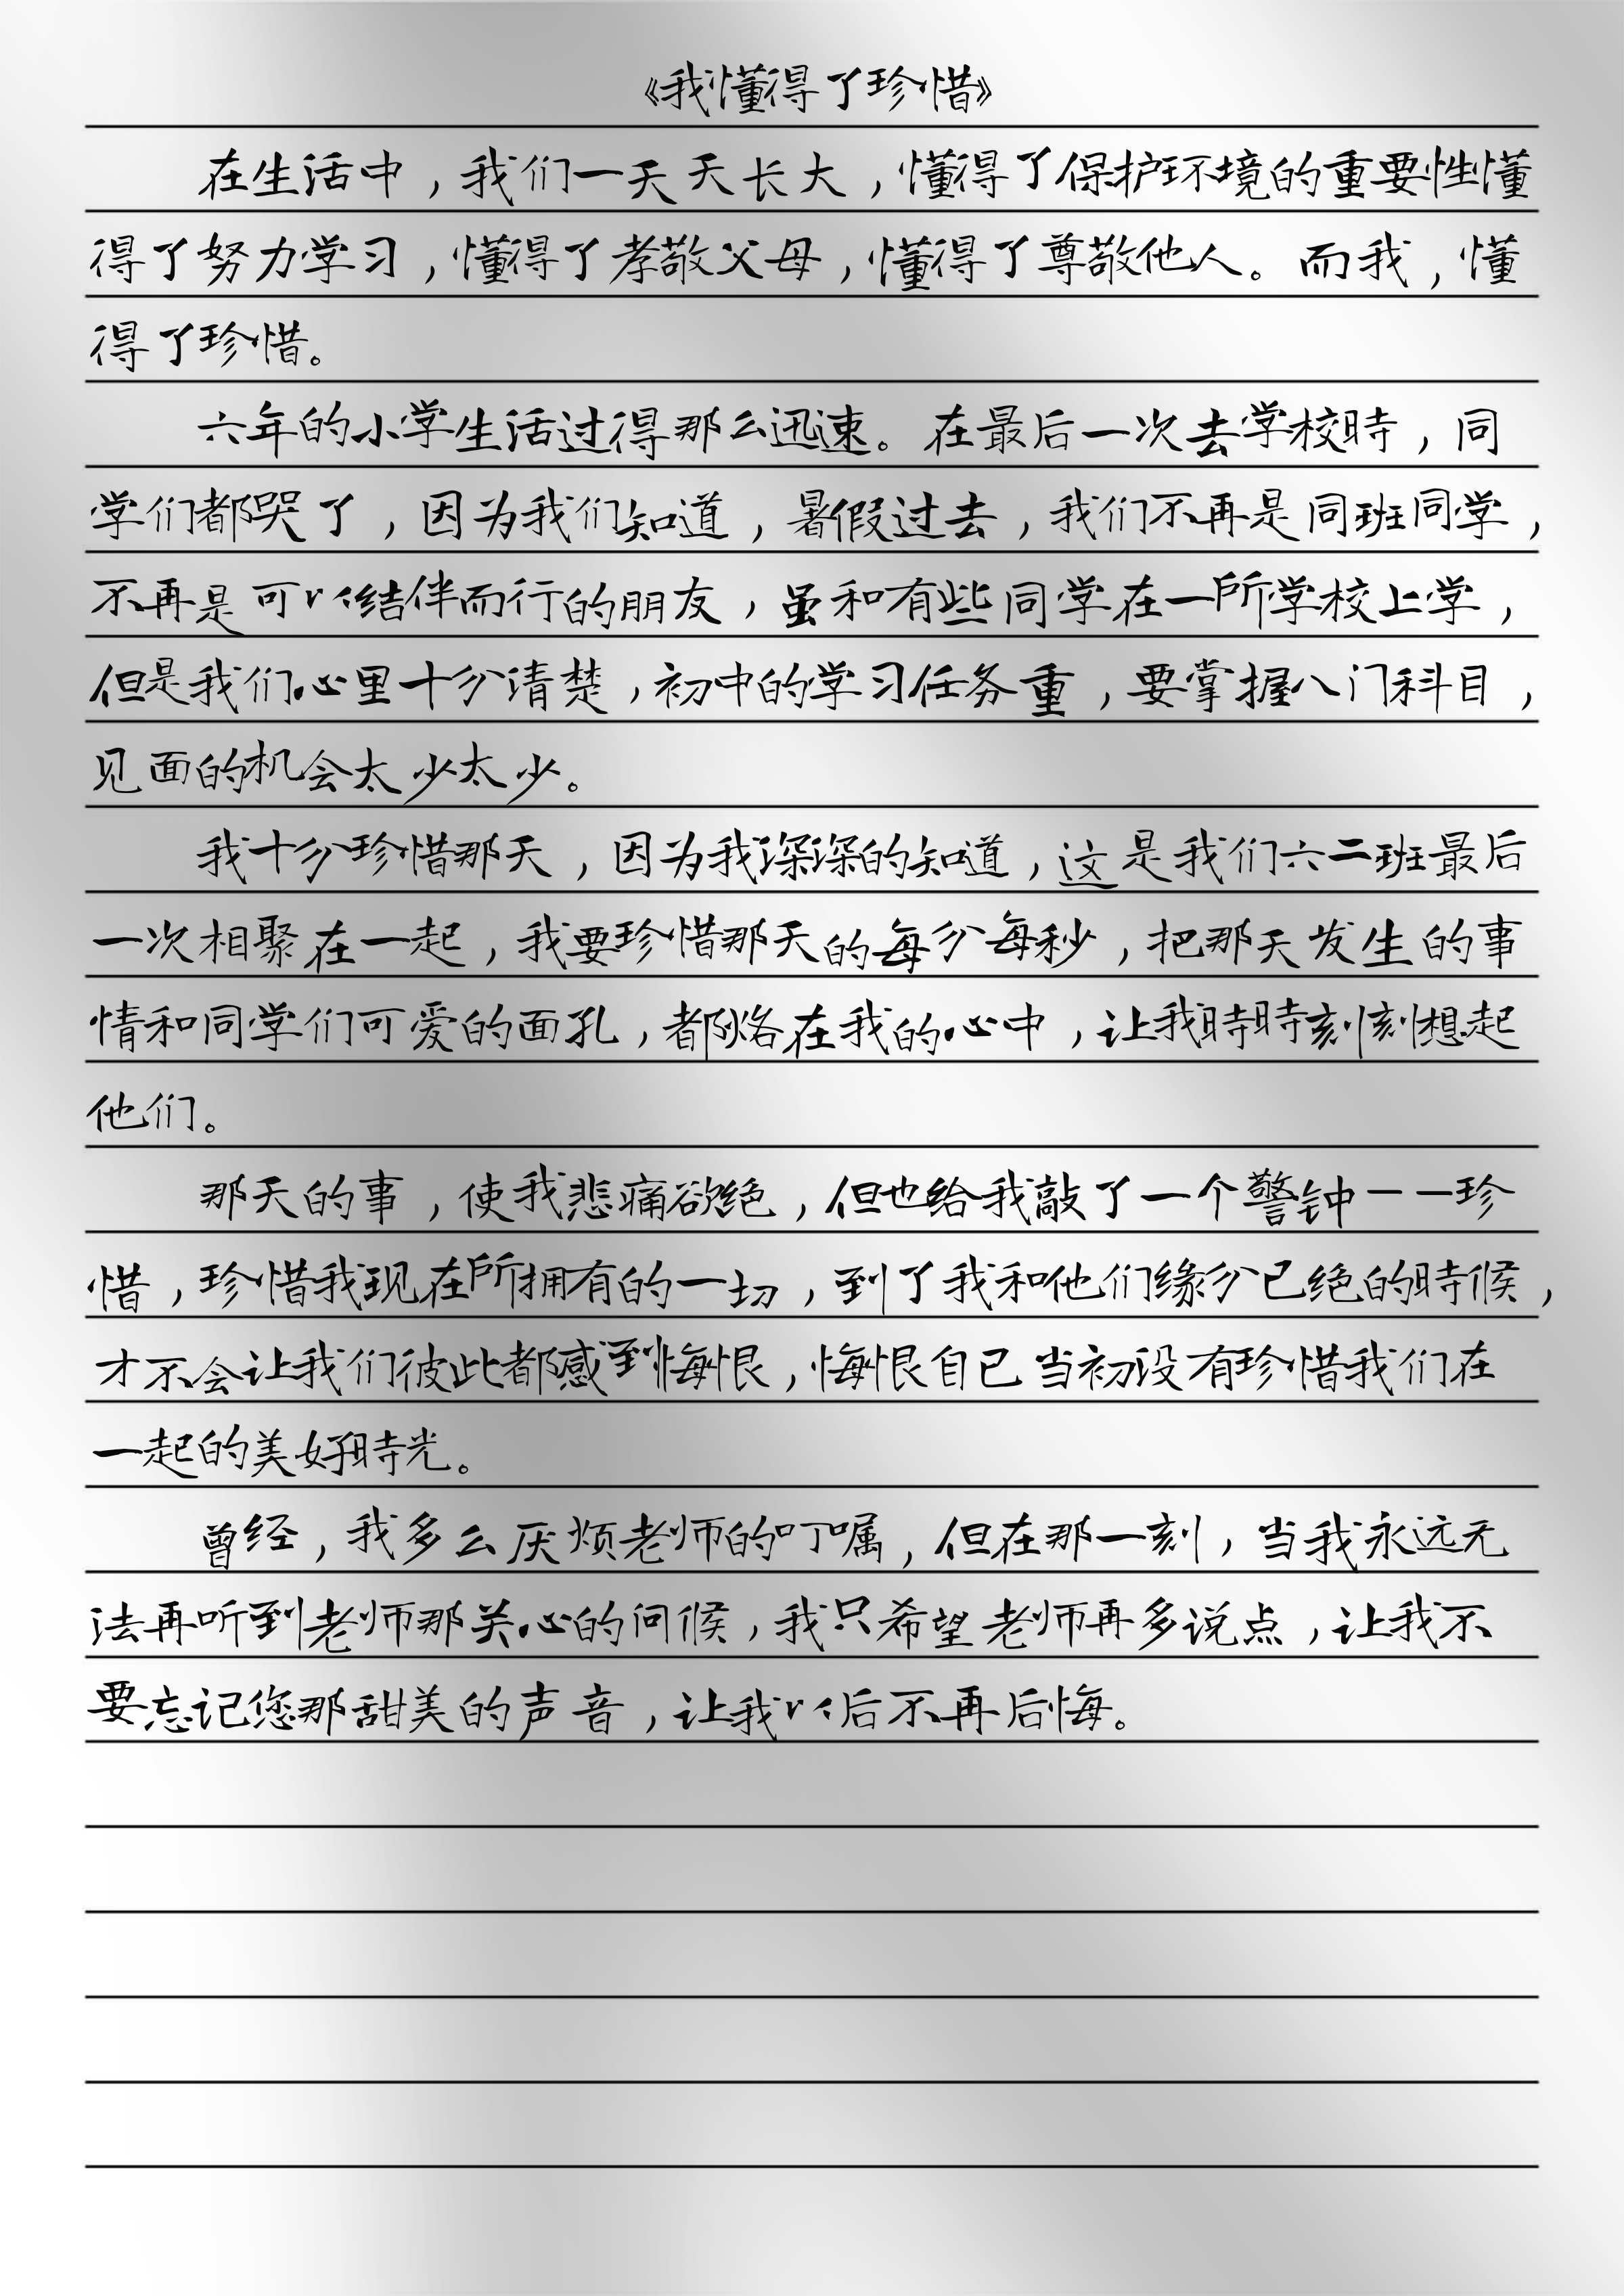 《我懂得了珍惜》
在生活中，我们一天天长大，懂得了保护环境的重要性懂
得了努力学习，懂得了孝敬父母，懂得了尊敬他人。而我，懂
得了珍惜。
六年的小学生活过得那么迅速。在最后一次去学校时，同
学们都哭了，因为我们知道，暑假过去，我们不再是同班同学，
不再是可以结伴而行的朋友，虽和有些同学在一所学校上学，
但是我们心里十分清楚，初中的学习任务重，要掌握八门科目，
见面的机会太少太少。
我十分珍惜那天，因为我深深的知道，这是我们六二班最后
一次相聚在一起，我要珍惜那天的每分每秒，把那天发生的事
情和同学们可爱的面孔，都烙在我的心中，让我时时刻刻想起
他们。
那天的事，使我悲痛欲绝，但也给我敲了一个警钟一一珍
惜，珍惜我现在所拥有的一切，到了我和他们缘分已绝的时候，
才不会让我们彼此都感到悔恨，悔恨自己当初没有珍惜我们在
一起的美好时光。
曾经，我多么厌烦老师的叮嘱，但在那一刻，当我永远无
法再听到老师那关心的问候，我只希望老师再多说点，让我不
要忘记您那甜美的声音，让我以后不再后悔。